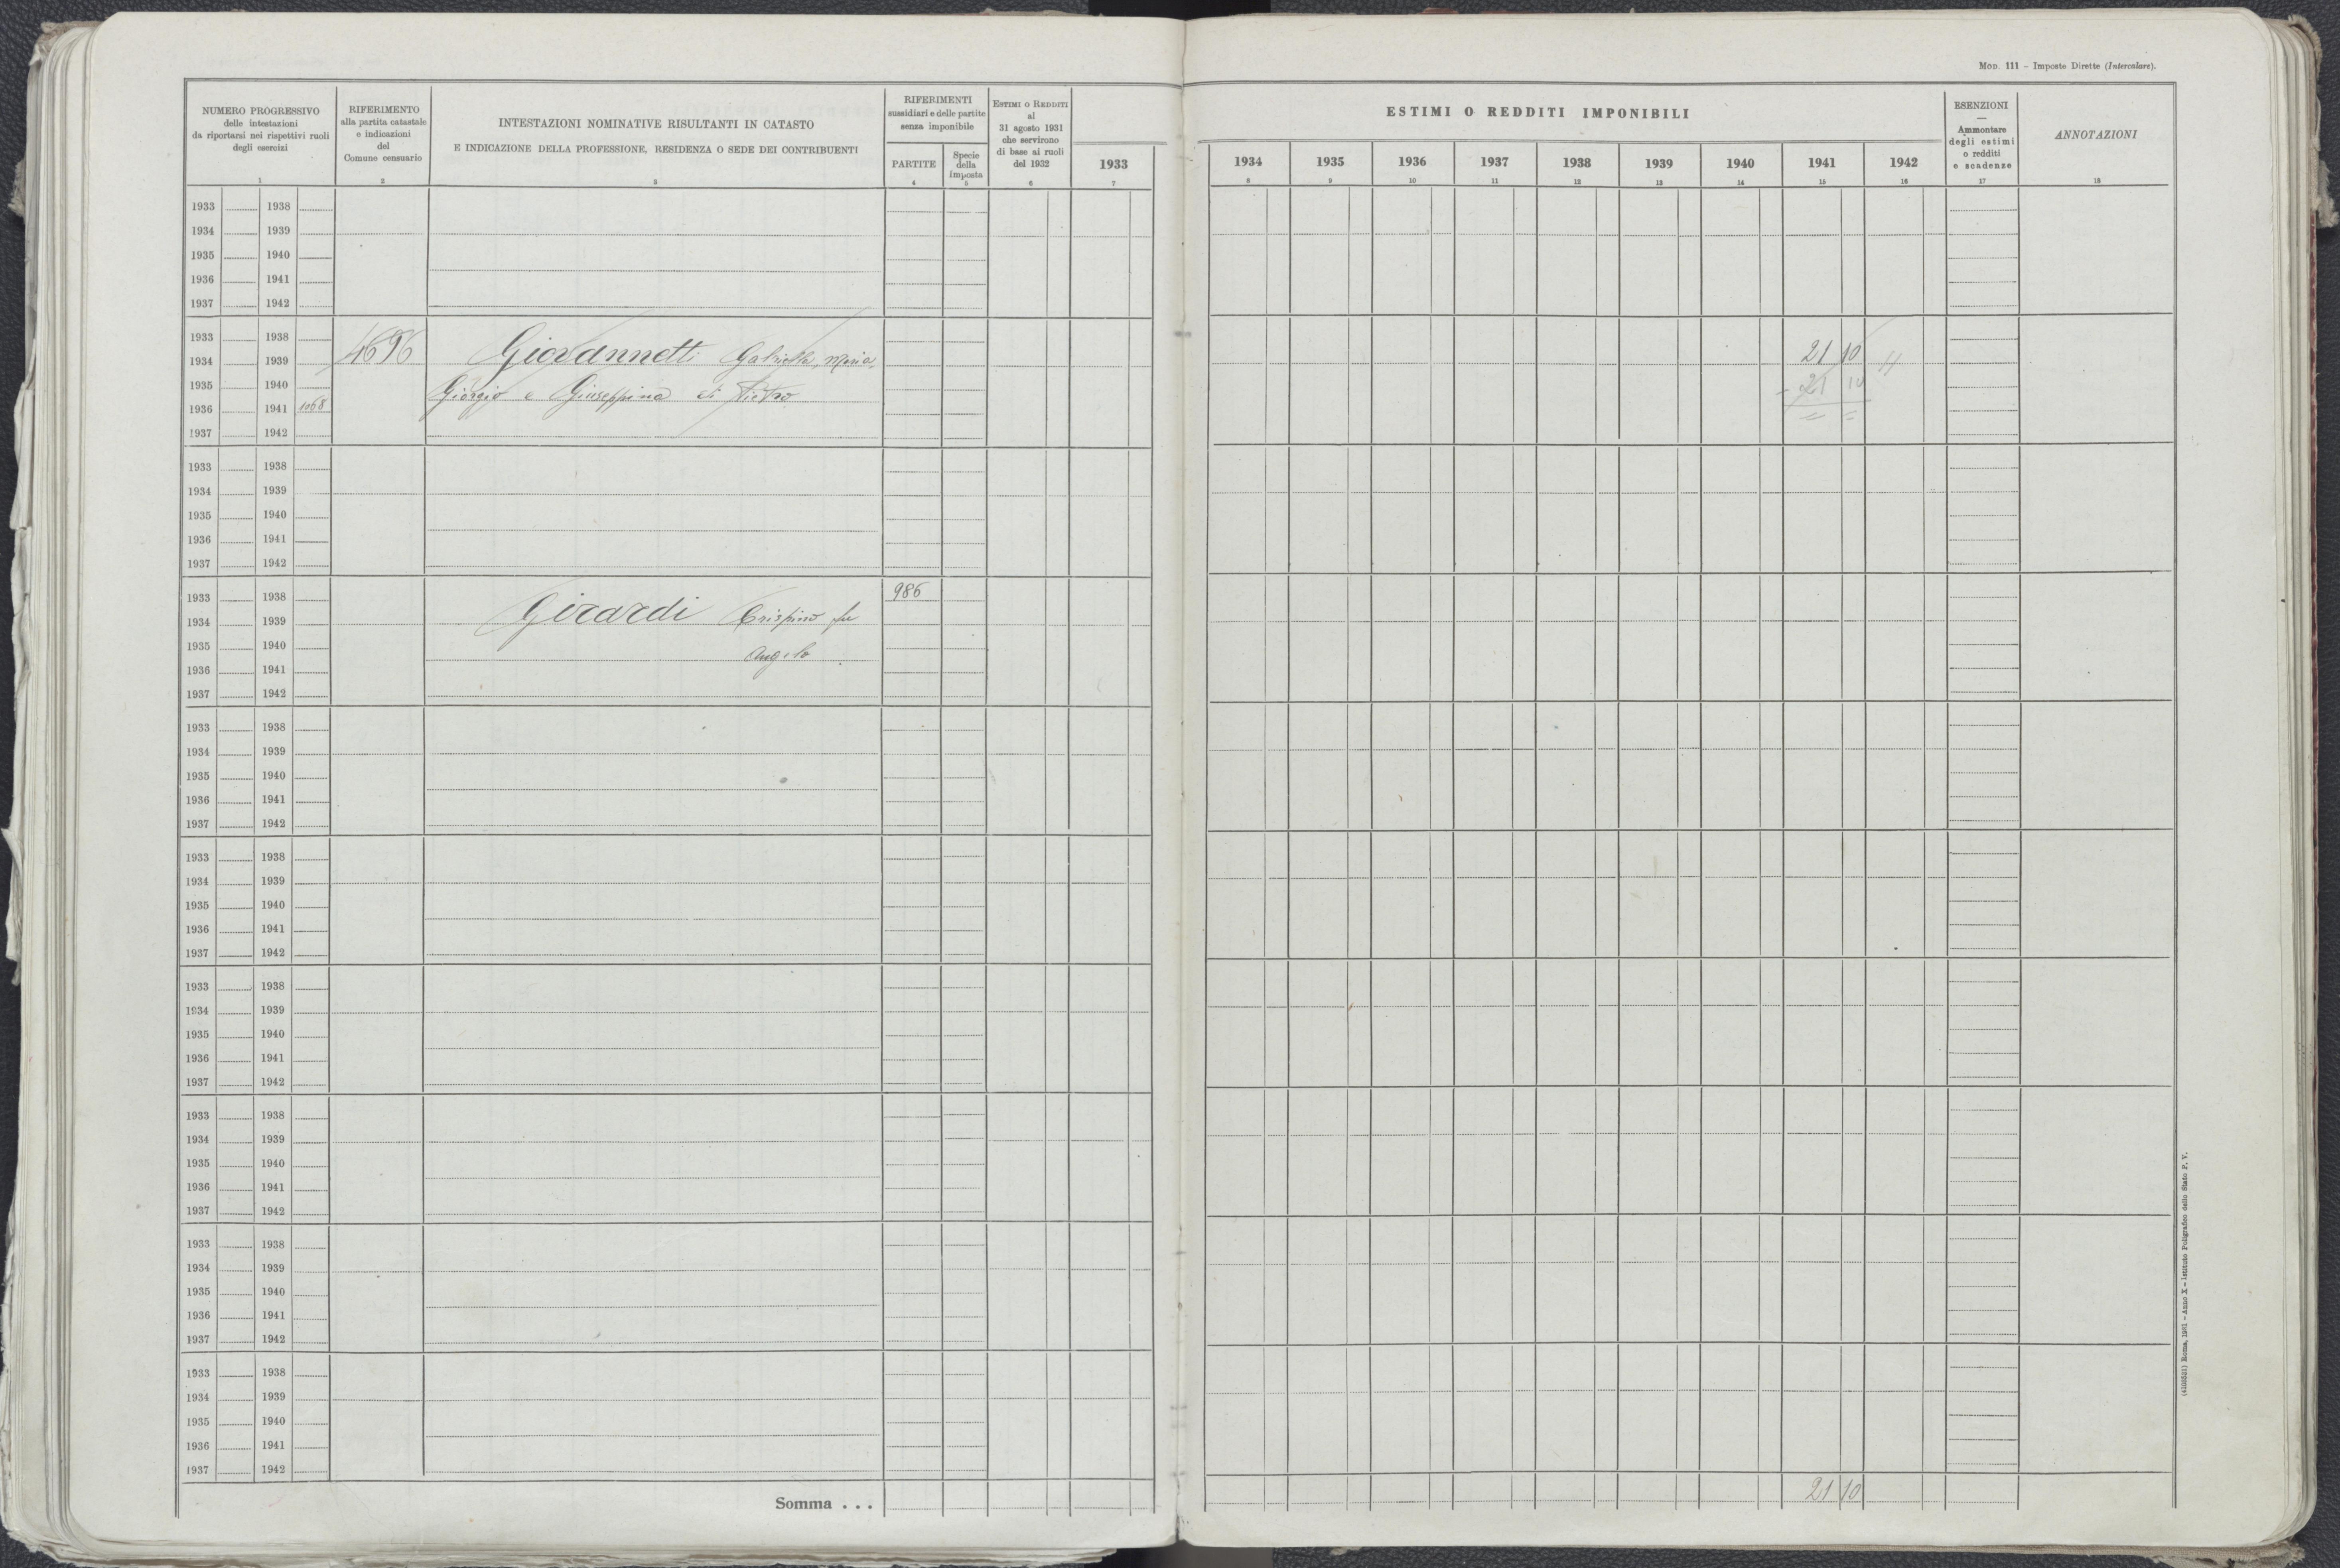 Mod. 111 - Imposte Dirette (Intercalare).
NUMERO PROGRESSIVO
delle intestazioni
da riportarsi nei rispettivi ruoli
degli esercizi
1
RIFERIMENTO
alla partita catastale
e indicazioni
del
Comune censuario
2
INTESTAZIONI NOMINATIVE RISULTANTI IN CATASTO
E INDICAZIONE DELLA PROFESSIONE, RESIDENZA O SEDE DEI CONTRIBUENTI
3
RIFERIMENTI
sussidiari e delle partite
senza imponibile
PARTITE
4
Specie
della
imposta
5
Estimi o Redditi
al
31 agosto 1931
che servirono
di base ai ruoli
del 1932
6
1933
7
ESTIMI O REDDITI IMPONIBILI
1934 1935 1936 1937 1938 1939 1940 1941 1942
8 9 10 11 12 13 14 15 16
ESENZIONI
—
Ammontare
degli estimi
o redditi
e scadenze
17
ANNOTAZIONI
18
1933 1938
1934 1939
1935 1940
1936 1941
1937 1942
1933 1938
1934 1939 4696 Giovannetti Gabriella, Maria, 21 10
1935 1940 Giorgio e Giuseppina di Pietro - 21 10
1936 1941 1068 = =
1937 1942
1933 1938
1934 1939
1935 1940
1936 1941
1937 1942
1933 1938 986
1934 1939 Girardi Crispino fu
1935 1940 Angelo
1936 1941
1937 1942
1933 1938
1934 1939
1935 1940
1936 1941
1937 1942
1933 1938
1934 1939
1935 1940
1936 1941
1937 1942
1933 1938
1934 1939
1935 1940
1936 1941
1937 1942
1933 1938
1934 1939
1935 1940
1936 1941
1937 1942
1933 1938
1934 1939
1935 1940
1936 1941
1937 1942
1933 1938
1934 1939
1935 1940
1936 1941
1937 1942
Somma . . . 21 10
Roma, 1931 - Anno X - Istituto Poligrafico dello Stato P. V.